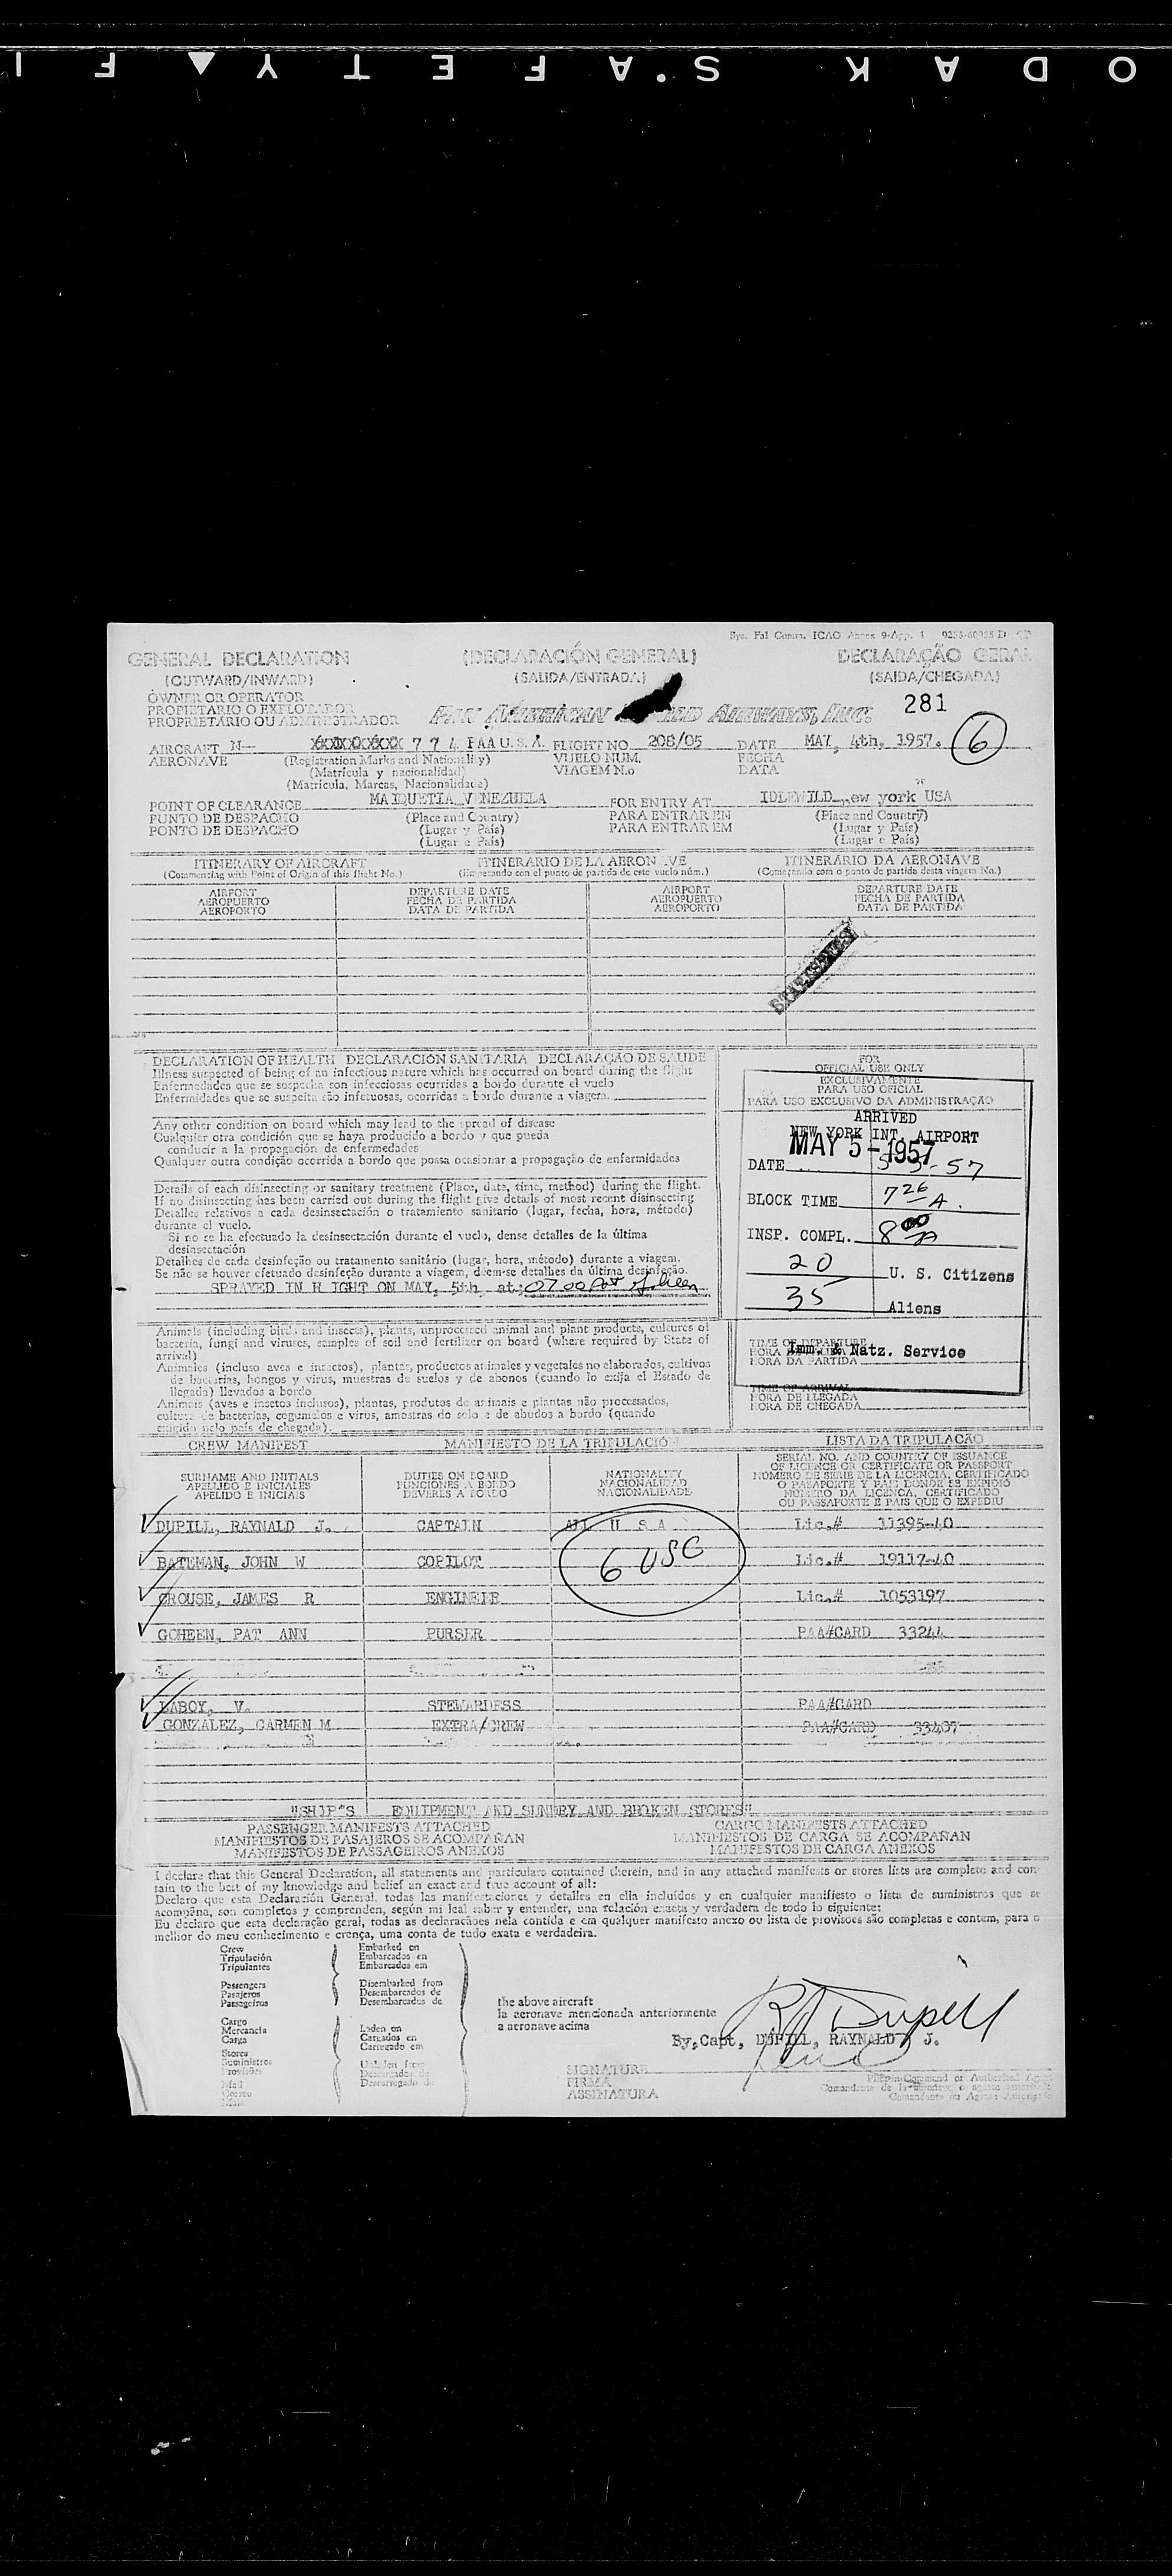 Sys. Fal Comm. ICAO Annex 9-App. 1
GENERAL DECLARATION (DECLARACIÓN GENERAL) DECLARAÇÃO GERAL
(OUTWARD/INWARD) (SALIDA/ENTRADA) (SAIDA/CHEGADA)
OWNER OR OPERATOR
PROPIETARIO O EXPLOTADOR
PROPRIETÁRIO OU ADMINISTRADOR
PAN AMERICAN WORLD AIRWAYS, INC. 281
AIRCRAFT N— 774 PAA U.S.A. FLIGHT NO. 208/05 DATE MAY, 4th, 1957. 6
AERONAVE (Registration Marks and Nationality) VUELO NUM. FECHA
(Matrícula y nacionalidad) VIAGEM No DATA
(Matrícula, Marcas, Nacionalidade)
POINT OF CLEARANCE MAIQUETIA VENEZUELA FOR ENTRY AT IDLEWILD new york USA
PUNTO DE DESPACHO (Place and Country) PARA ENTRAR EN (Place and Country)
PONTO DE DESPACHO (Lugar y País) PARA ENTRAR EM (Lugar y País)
(Lugar e País) (Lugar e País)
ITINERARY OF AIRCRAFT ITINERARIO DE LA AERONAVE ITINERÁRIO DA AERONAVE
(Commencing with Point of Origin of this flight No.) (Empezando con el punto de partida de este vuelo núm.) (Começando com o ponto de partida desta viagem No.)
AIRPORT DEPARTURE DATE AIRPORT DEPARTURE DATE
AEROPUERTO FECHA DE PARTIDA AEROPUERTO FECHA DE PARTIDA
AEROPORTO DATA DE PARTIDA AEROPORTO DATA DE PARTIDA
DECLARATION OF HEALTH DECLARACIÓN SANITARIA DECLARAÇAO DE SAUDE
Illness suspected of being of an infectious nature which has occurred on board during the flight
Enfermedades que se sospecha son infecciosas ocurridas a bordo durante el vuelo
Enfermidades que se suspeita são infetuosas, ocorridas a bordo durante a viagem.
Any other condition on board which may lead to the spread of disease
Cualquier otra condición que se haya producido a bordo y que pueda
conducir a la propagación de enfermedades
Qualquer outra condição ocorrida a bordo que possa ocasionar a propagação de enfermidades
Details of each disinsecting or sanitary treatment (Place, date, time, method) during the flight.
If no disinsecting has been carried out during the flight give details of most recent disinsecting
Detalles relativos a cada desinsectación o tratamiento sanitario (lugar, fecha, hora, método)
durante el vuelo.
Si no se ha efectuado la desinsectación durante el vuelo, dense detalles de la última
desinsectación
Detalhes de cada desinfeção ou tratamento sanitário (lugar, hora, método) durante a viagem.
Se não se houver efetuado desinfeção durante a viagem, deem-se detalhes da última desinfeção.
SPRAYED IN FLIGHT ON MAY, 5th at 0700 Pat Goheen
FOR
OFFICIAL USE ONLY
EXCLUSIVAMENTE
PARA USO OFICIAL
PARA USO EXCLUSIVO DA ADMINISTRAÇÃO
ARRIVED
NEW YORK INT. AIRPORT
MAY 5-1957
DATE 5-5-57
BLOCK TIME 7 26 A.
INSP. COMPL. 8 00 A
20 U. S. Citizens
35 Aliens
Imm. & Natz. Service
TIME OF DEPARTURE
HORA DA PARTIDA
TIME OF ARRIVAL
HORA DE LLEGADA
HORA DE CHEGADA
Animals (including birds and insects), plants, unprocessed animal and plant products, cultures of
bacteria, fungi and viruses, samples of soil and fertilizer on board (where required by State of
arrival)
Animales (incluso aves e insectos), plantas, productos animales y vegetales no elaborados, cultivos
de bacterias, hongos y virus, muestras de suelos y de abonos (cuando lo exija el Estado de
llegada) llevados a bordo
Animais (aves e insetos inclusos), plantas, produtos de animais e plantas não processados,
cultura de bacterias, cogumelos e virus, amostras do solo e de abudos a bordo (quando
exigido pelo país de chegada).
CREW MANIFEST MANIFIESTO DE LA TRIPULACIÓN LISTA DA TRIPULAÇÃO
SURNAME AND INITIALS DUTIES ON BOARD NATIONALITY SERIAL NO. AND COUNTRY OF ISSUANCE
APELLIDO E INICIALES FUNCIONES A BORDO NACIONALIDAD OF LICENCE OR CERTIFICATE OR PASSPORT
APELIDO E INICIAIS DEVERES A BORDO NACIONALIDADE NÚMERO DE SERIE DE LA LICENCIA, CERTIFICADO
O PASAPORTE Y PAIS DONDE SE EXPIDIÓ
NÚMERO DA LICENCA, CERTIFICADO
OU PASSAPORTE E PAIS QUE O EXPEDIU
DUPILL, RAYNALD J. CAPTAIN ALL U S A Lic.# 11395-40
BATEMAN, JOHN W COPILOT 6 USC Lic.# 19117-40
CROUSE, JAMES R ENGINEER Lic.# 1053197
GOHEEN, PAT ANN PURSER PAA#CARD 33244
LABOY, V. STEWARDESS PAA#CARD
GONZALEZ, CARMEN M EXTRA/CREW PAA#CARD 33407
"SHIP"S EQUIPMENT AND SUNDRY AND BROKEN STORES"
PASSENGER MANIFESTS ATTACHED CARGO MANIFESTS ATTACHED
MANIFIESTOS DE PASAJEROS SE ACOMPAÑAN MANIFIESTOS DE CARGA SE ACOMPAÑAN
MANIFESTOS DE PASSAGEIROS ANEXOS MANIFESTOS DE CARGA ANEXOS
I declare that this General Declaration, all statements and particulars contained therein, and in any attached manifests or stores lists are complete and con-
tain to the best of my knowledge and belief an exact and true account of all:
Declaro que esta Declaración General, todas las manifestaciones y detalles en ella incluídos y en cualquier manifiesto o lista de suministros que se
acompaña, son completos y comprenden, según mi leal saber y entender, una relación exacta y verdadera de todo lo siguiente:
Eu declaro que esta declaração geral, todas as declaracões nela contida e em qualquer manifesto anexo ou lista de provisões são completas e contem, para o
melhor do meu conhecimento e crença, uma conta de tudo exata e verdadeira.
Crew Embarked on
Tripulación Embarcados en
Tripulantes Embarcados em
Passengers Disembarked from
Pasajeros Desembarcados de
Passageiros Desembarcados de
the above aircraft
la aeronave mencionada anteriormente
a aeronave acima
Cargo Laden on
Mercancía Cargados en
Carga Carregado em
Stores Unladen from
Suministros Descargados de
Provisões Descarregado de
Mail
Correo
RJ Dupill
By, Capt, DUPILL, RAYNALD J.
SIGNATURE
FIRMA
ASSINATURA
Pilot-in-Command or Authorized Agent
KODAK SAFETY FI